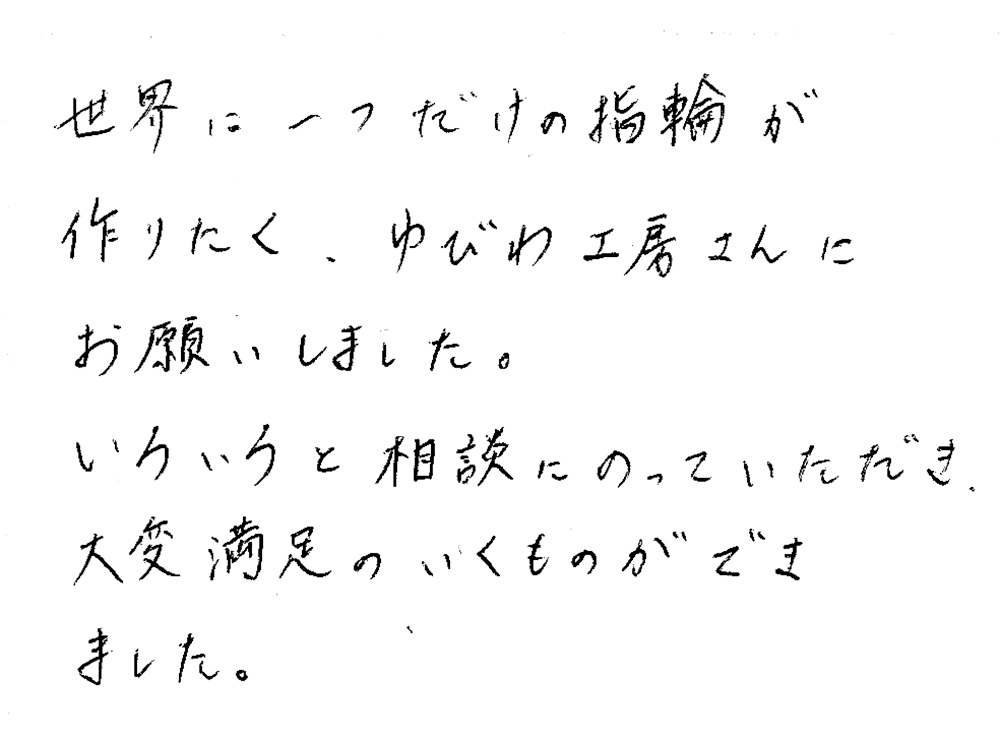 世界に一つだけの指輪が
作りたく、ゆびわ工房さんに
お願いしました。
いろいろと相談にのっていただき、
大変満足のいくものができ
ました。